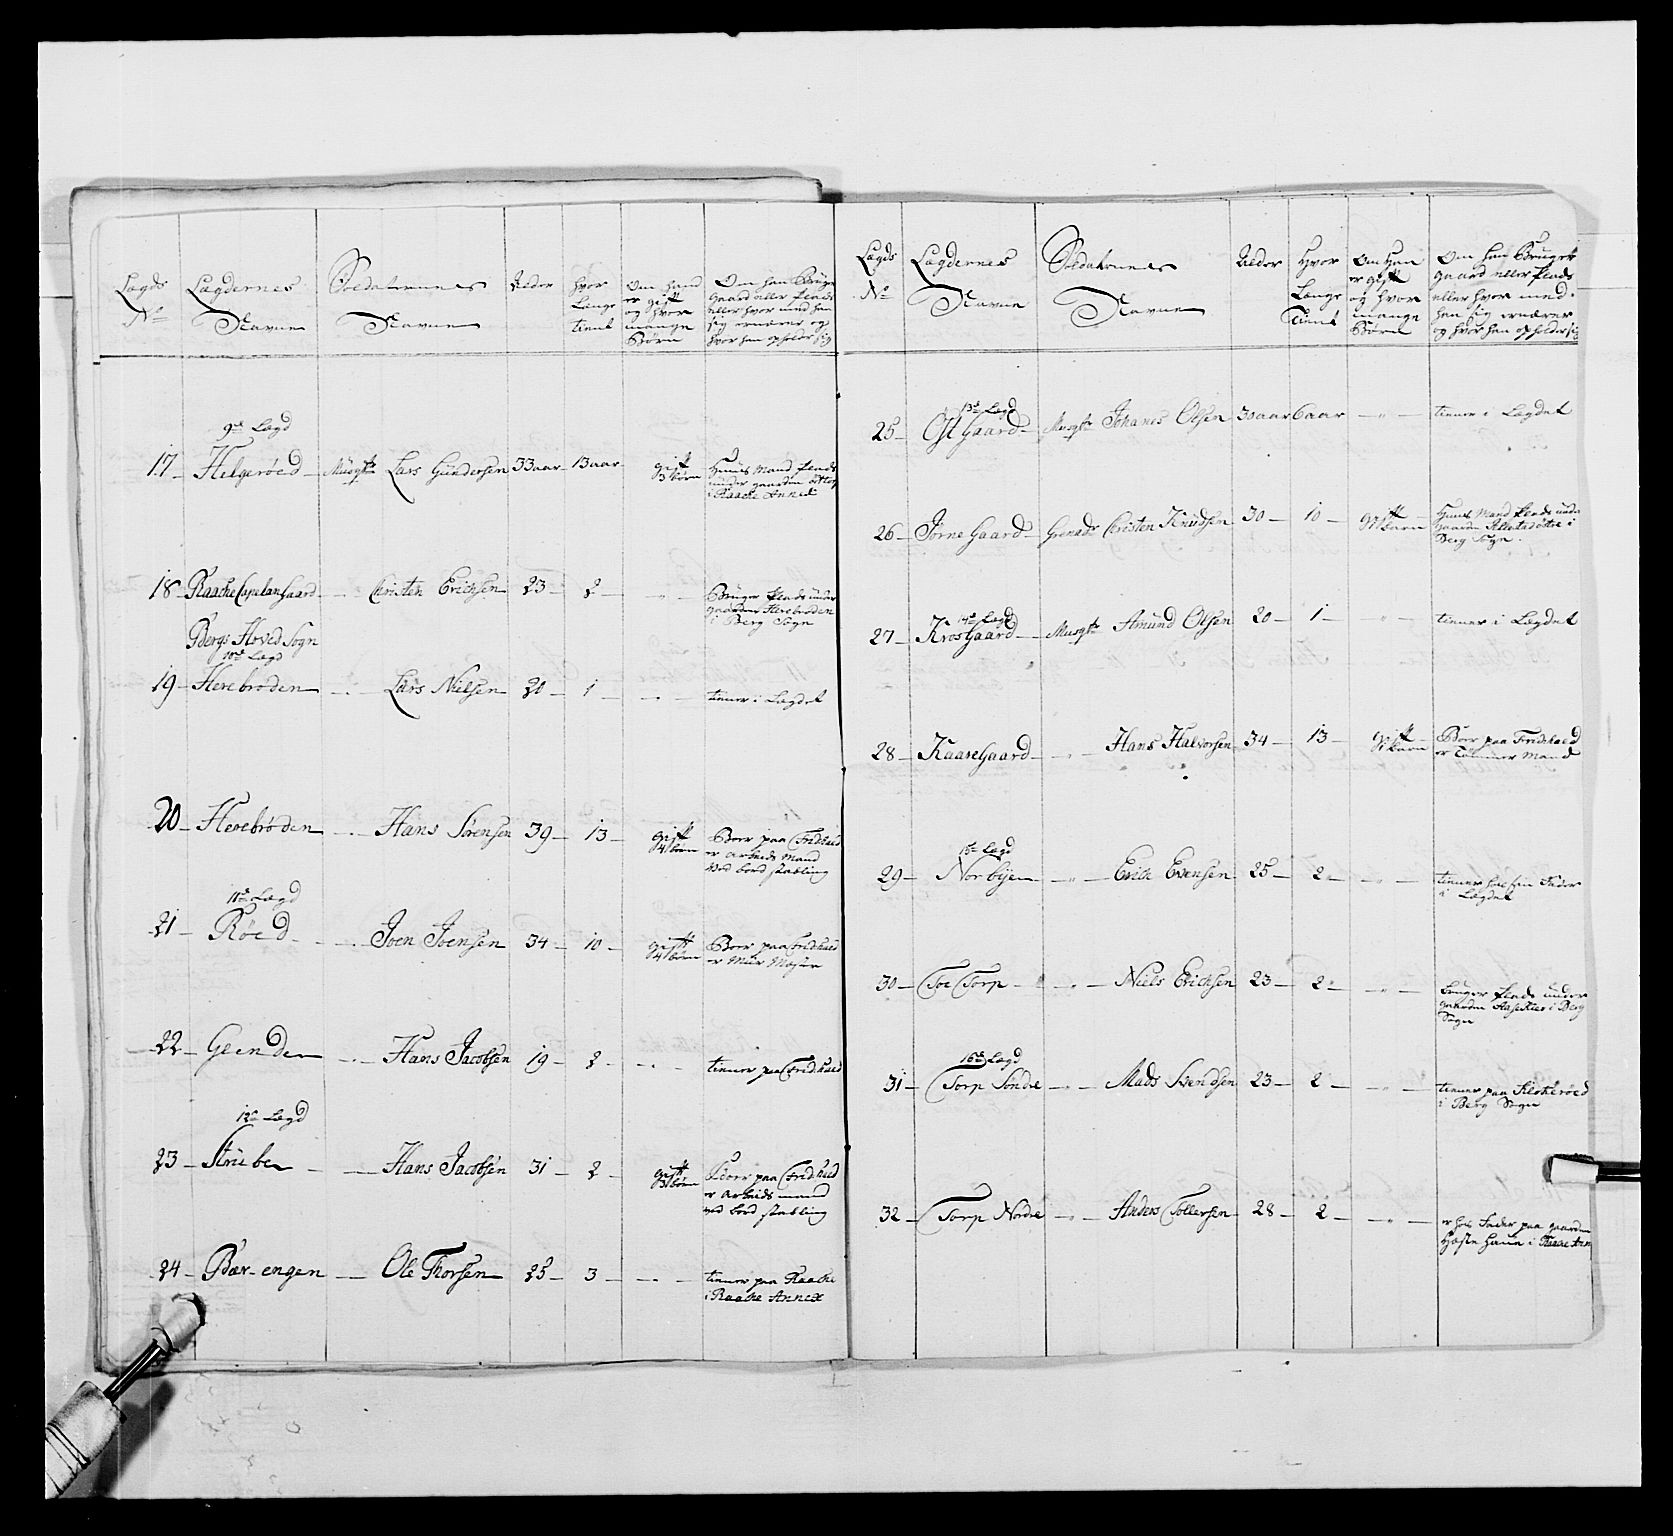 Lægds No
Lægdernes Navne
Soldaternes Navne
Alder
Hvor Længe tient
Om hand er gift og hvor mange Børn
Om han Bruger gaard eller Plads eller hvor med han sig ernærer og hvor han opholder sig
9de Lægd
17 – Helgerøed – Musqtr Lars Gundersen 33 aar – 13 aar – gift 3 børn
Huus Mand Plads under gaarden
i Raacke Annex
18 – Raacke Capelan Gaard – Christen Erichsen – 23 – 2 – „ –
Bruger Plads under gaarden Herebrøden i Berg Sogn
Bergs Hoved Sogn
10de Lægd
19 – Herebroden – Lars Nielsen – 20 – 1 – „ – tiener i Lægdet
20 – Herebrøden – Hans Sørensen 39 – 13 – gift 4 børn
Boer paa Fridrhald er arbeids Mand ved bord stabling
11te Lægd
21 – Røed – Joen Joensen – 34 – 10 – gift 4 børn
Boer paa Fridrhald er Mur Mester
22 – Geenden – Hans Jacobsen 19 – 2 – „ – tiener paa Fridrhald
12te Lægd
23 – Strübe – Hans Jacobsen 31 – 2 – gift 3 børn
Boer paa Fridrhald er arbeids mand ved bord stabling
24 – Bær-engen – Ole Thorsen – 25 – 3 – „ –
tiener paa Raacke i Raacke Annex
Lægds No
Lægdernes Navne
Soldaternes Navne
Alder
Hvor Længe Tient
Om Han er gift og hvor mange Børn
Om han Bruger gaard eller Plads eller hvor med han sig ernærer og hvor han opholder sig
13de Lægd
25 – Ostgaard – Musqtr Johanes Olsen 30 aar 6 aar – „ – tiener i Lægdet
26 – Jørne Gaard – Grenadr Christen Knudsen 30 – 10 – gift børn
Huus Mand Plads under gaarden østre i Berg Sogn
14de Lægd
27 – Kros Gaard – Musqtr Amund Olsen 20 – 1 – „ – tiener i Lægdet
28 – Kaare Gaard – „ – Hans Halvorsen 34 – 13 – gift børn
Boer paa Fridrhald er Tømmer Mand
15de Lægd
29 – Norbye – „ – Erich Evensen 25 – 2 – „ –
tiener hos sin Fader i Lægdet
30 – Toe Torp – „ – Niels Erichsen 23 – 2 – „ –
bruger Plads under gaarden i Berg Sogn
16de Lægd
31 – Torp Søndre – „ – Mads Svendsen 23 – 2 – „ –
tiener paa i Berg Sogn
32 – Torp Nordre – „ – Anders Tollersen – 28 – 2 – „ –
er hos Fader paa gaarden i Raacke Ann